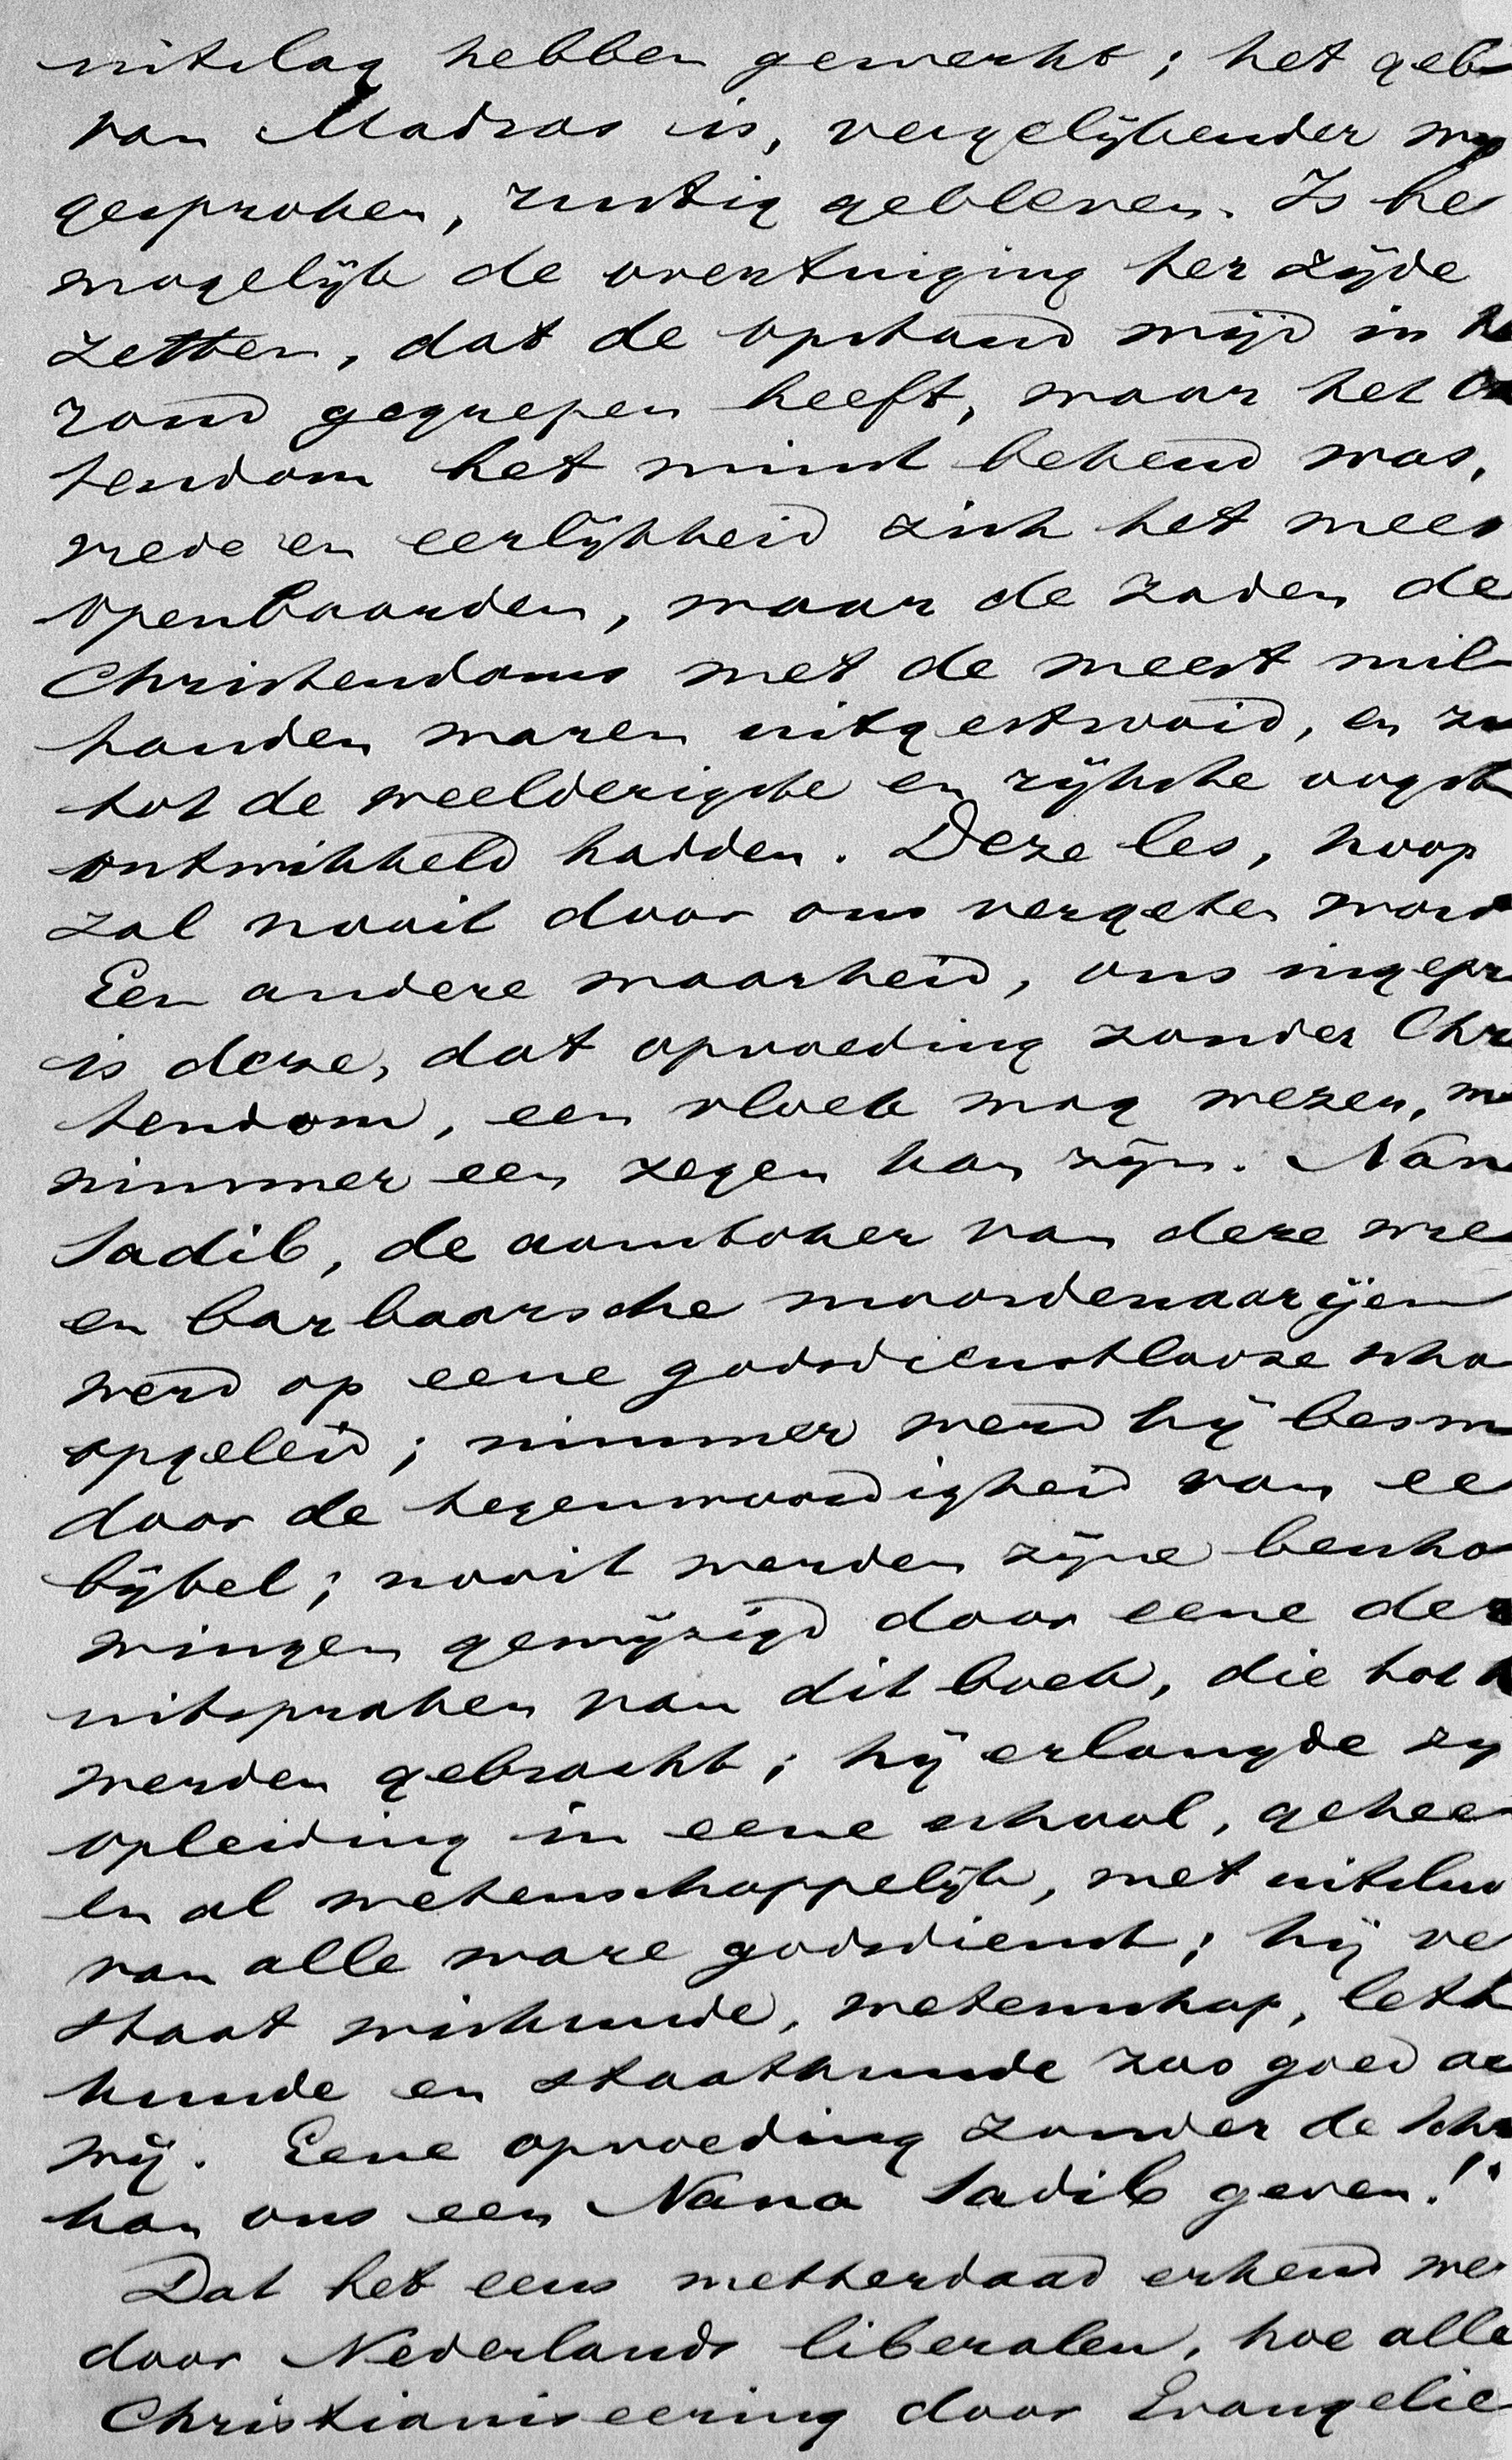 uitslag hebben gewerkt; het geb
van Madras is, vergelijkender wij
gesproken, rustig gebleven. Is he
mogelijk de overtuiging ter zijde
zetten, dat de opstand wijd in
rond gegrepen heeft, waar het
tendom het minst bekend was,
vrede en eerlijkheid zich het mees
openbaarden, waar de zaden de
Christendoms met de meest mil
handen waren uitgestrooid, en z
tot de weelderigste en rijkste oogst
ontwikkeld hadden. Deze les, hoop
zal nooit door ons vergeten word
Een andere waarheid, ons ingepr
is deze, dat opvoeding zonder Chr
tendom, een vloek mag wezen, m
nimmer een zegen kan zijn. Nan
Sadib, de aanstoker van deze wre
en barbaarsche moordenaarijen
werd op eene godsdienstlooze scho
opgeleid; nimmer werd hij besm
door de tegenwoordigheid van ee
bijbel; nooit werden zijne bescho
wingen gewijzigd door eene der
uitspraken van dit boek, die tot
werden gebracht; hij erlangde zij
opleiding in eene school, gehee
en al wetenschappelijk, met uitslui
van alle ware godsdienst; hij ve
staat wiskunde, wetenschap, lett
kunde en staatkunde zoo goed a
wij. Eene opvoeding zonder de Schr
kan ons een Nana Sadib geven!"
Dat het eens metterdaad erkend we
door Nederlands liberalen, hoe alle
Christianiseering door Evangelie